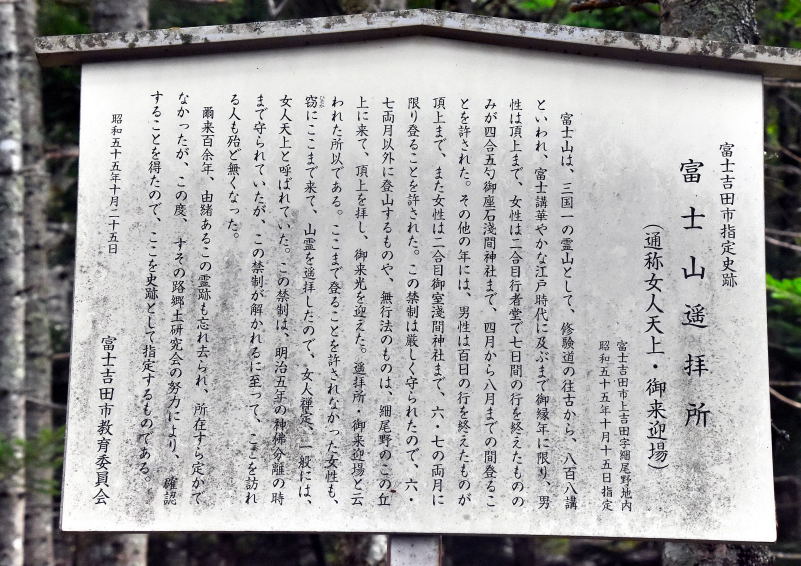 富士吉田市指定史跡
富士山遥拝所
(通称女人天上・御来迎場)
富士吉田市上吉田字細尾野地内
昭和五十五年十月十五日指定
富士山は、三国一の霊山として、修験道の往古から、八百八講
といわれ、富士講華やかな江戸時代に及ぶまで御縁年に限り、男
性は頂上まで、女性は二合目行者堂で七日間の行を終えたものの
みが四合五勺御座石浅間神社まで、四月から八月までの間登るこ
とを許された。その他の年には、男性は百日の行を終えたものが
頂上まで、また女性は二合目御室浅間神社まで、六・七の両月に
限り登ることを許された。この禁制は厳しく守られたので、六・
七両月以外に登山するものや、無行法のものは、細尾野のこの丘
上に来て、頂上を拝し、御来光を迎えた。遥拝所・御来迎場と云
われた所以である。ここまで登ることを許されなかった女性も、
窃にここまで来て、山霊を遥拝したので、女人禅定、一般には、
女人天上と呼ばれていた。この禁制は、明治五年の神佛分離の時
まで守られていたが、この禁制が解かれるに至って、ここを訪れ
る人も殆ど無くなった。
爾来百余年、由緒あるこの霊跡も忘れ去られ、所在すら定かで
なかったが、この度、すその路郷土研究会の努力により、確認
することを得たので、ここを史跡として指定するものである。
昭和五十五年十月二十五日
富士吉田市教育委員会